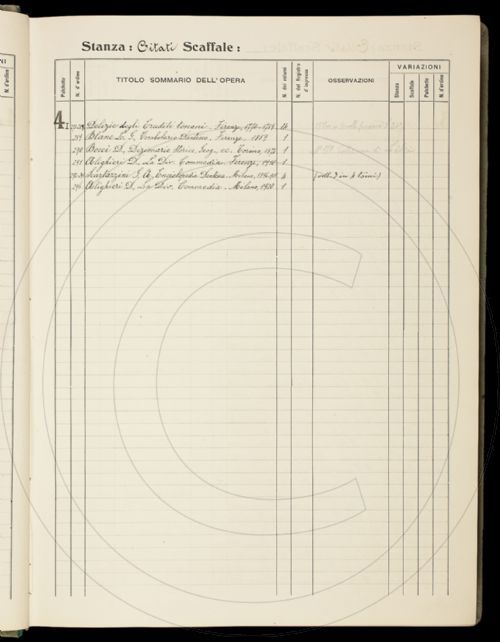 Stanza: Citati Scaffale:
Palchetto N. d'ordine TITOLO SOMMARIO DELL'OPERA N. dei volumi N. del Registro d'ingresso OSSERVAZIONI VARIAZIONI Stanza Scaffale Palchetto N. d'ordine
4 Delizie degli Eruditi toscani. Firenze, 1770-1789 14
289 Blanc L. G. Vocabolario Dantesco, Firenze, 1 1
290 Bocci D. Dizionario Storico, Geog. ec. Torino, 1873 1
291 Alighieri D. La Div. Commedia. Firenze, 1
Scartazzini G. A. Enciclopedia Dantesca. Milano, 4 (voll. 2 in 4 tomi)
296 Alighieri D. La Div. Commedia. Milano, 1920 1
N. d'ordine